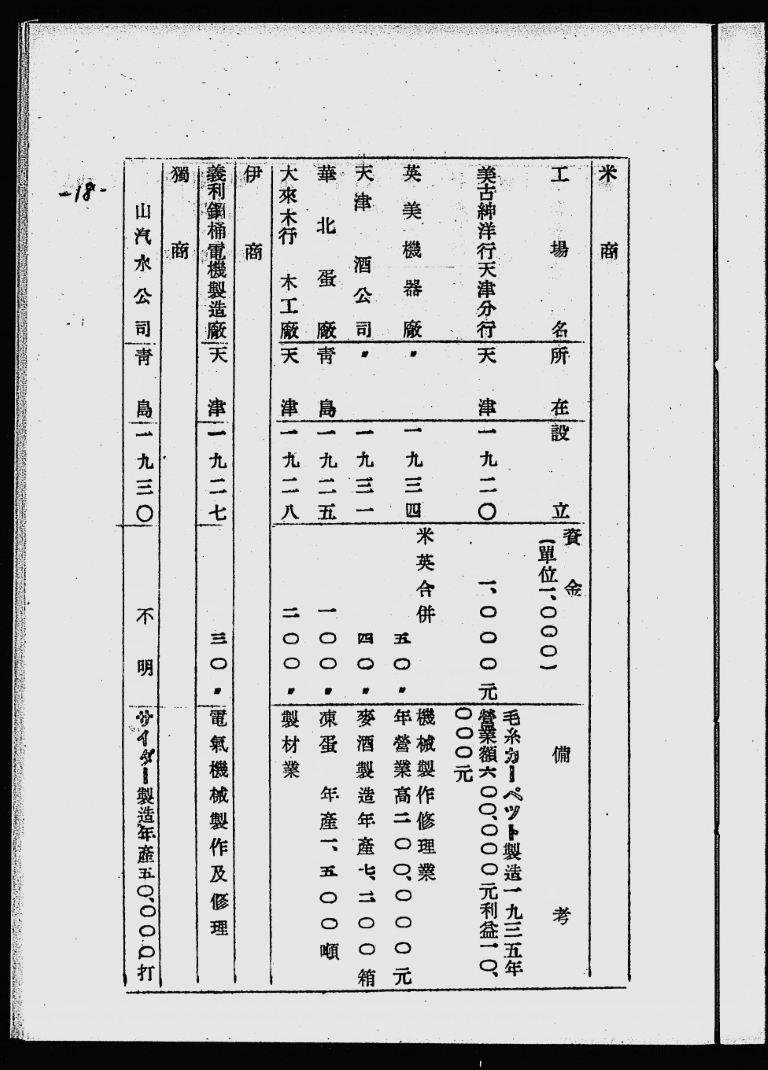 米商
工場名 所在 設立 資金(單位一、〇〇〇) 備考
美古紳洋行天津分行 天津 一九二〇 一、〇〇〇元 毛糸カーペット製造一九三五年營業額六〇〇、〇〇〇元利益一〇、〇〇〇元
英美機器廠 〃 一九三四 米英合併 五〇〃 機械製作修理業 年營業高二〇〇、〇〇〇元
天津酒公司 〃 一九三一 四〇〃 麥酒製造年產七、二〇〇箱
華北蛋廠 青島 一九二五 一〇〇〃 凍蛋 年產一、五〇〇噸
大來木行 木工廠 天津 一九二八 二〇〇〃 製材業
伊商
義利鋼桶電機製造廠 天津 一九二七 三〇〃 電氣機械製作及修理
獨商
山汽水公司 青島 一九三〇 不明 サイダー製造年產五〇、〇〇〇打
-18-